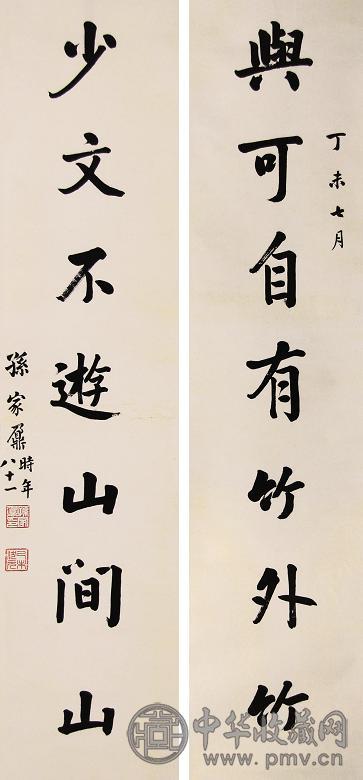 丁未七月
與可自有竹外竹
少文不遊山間山
孫家鼐時年
八十一
中华收藏网
www.pmv.cn